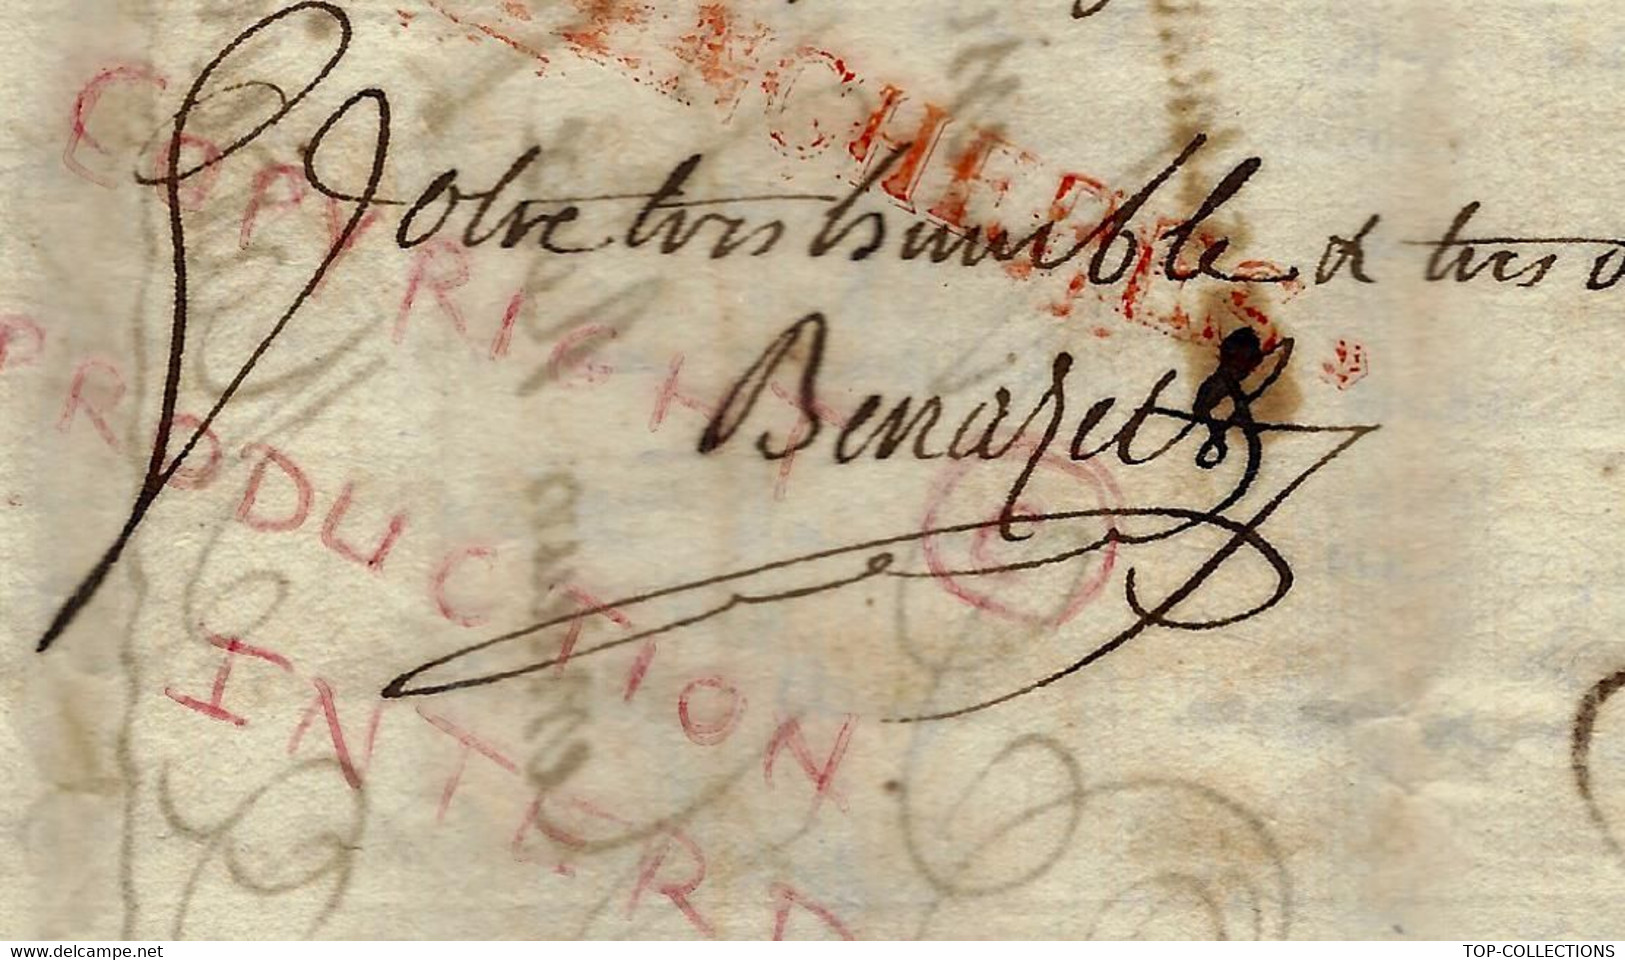 Votre tres humble & tres o
Benazet
COPYRIGHT C
PRODUCTION
INTERD
www.delcampe.net
TOP-COLLECTIONS